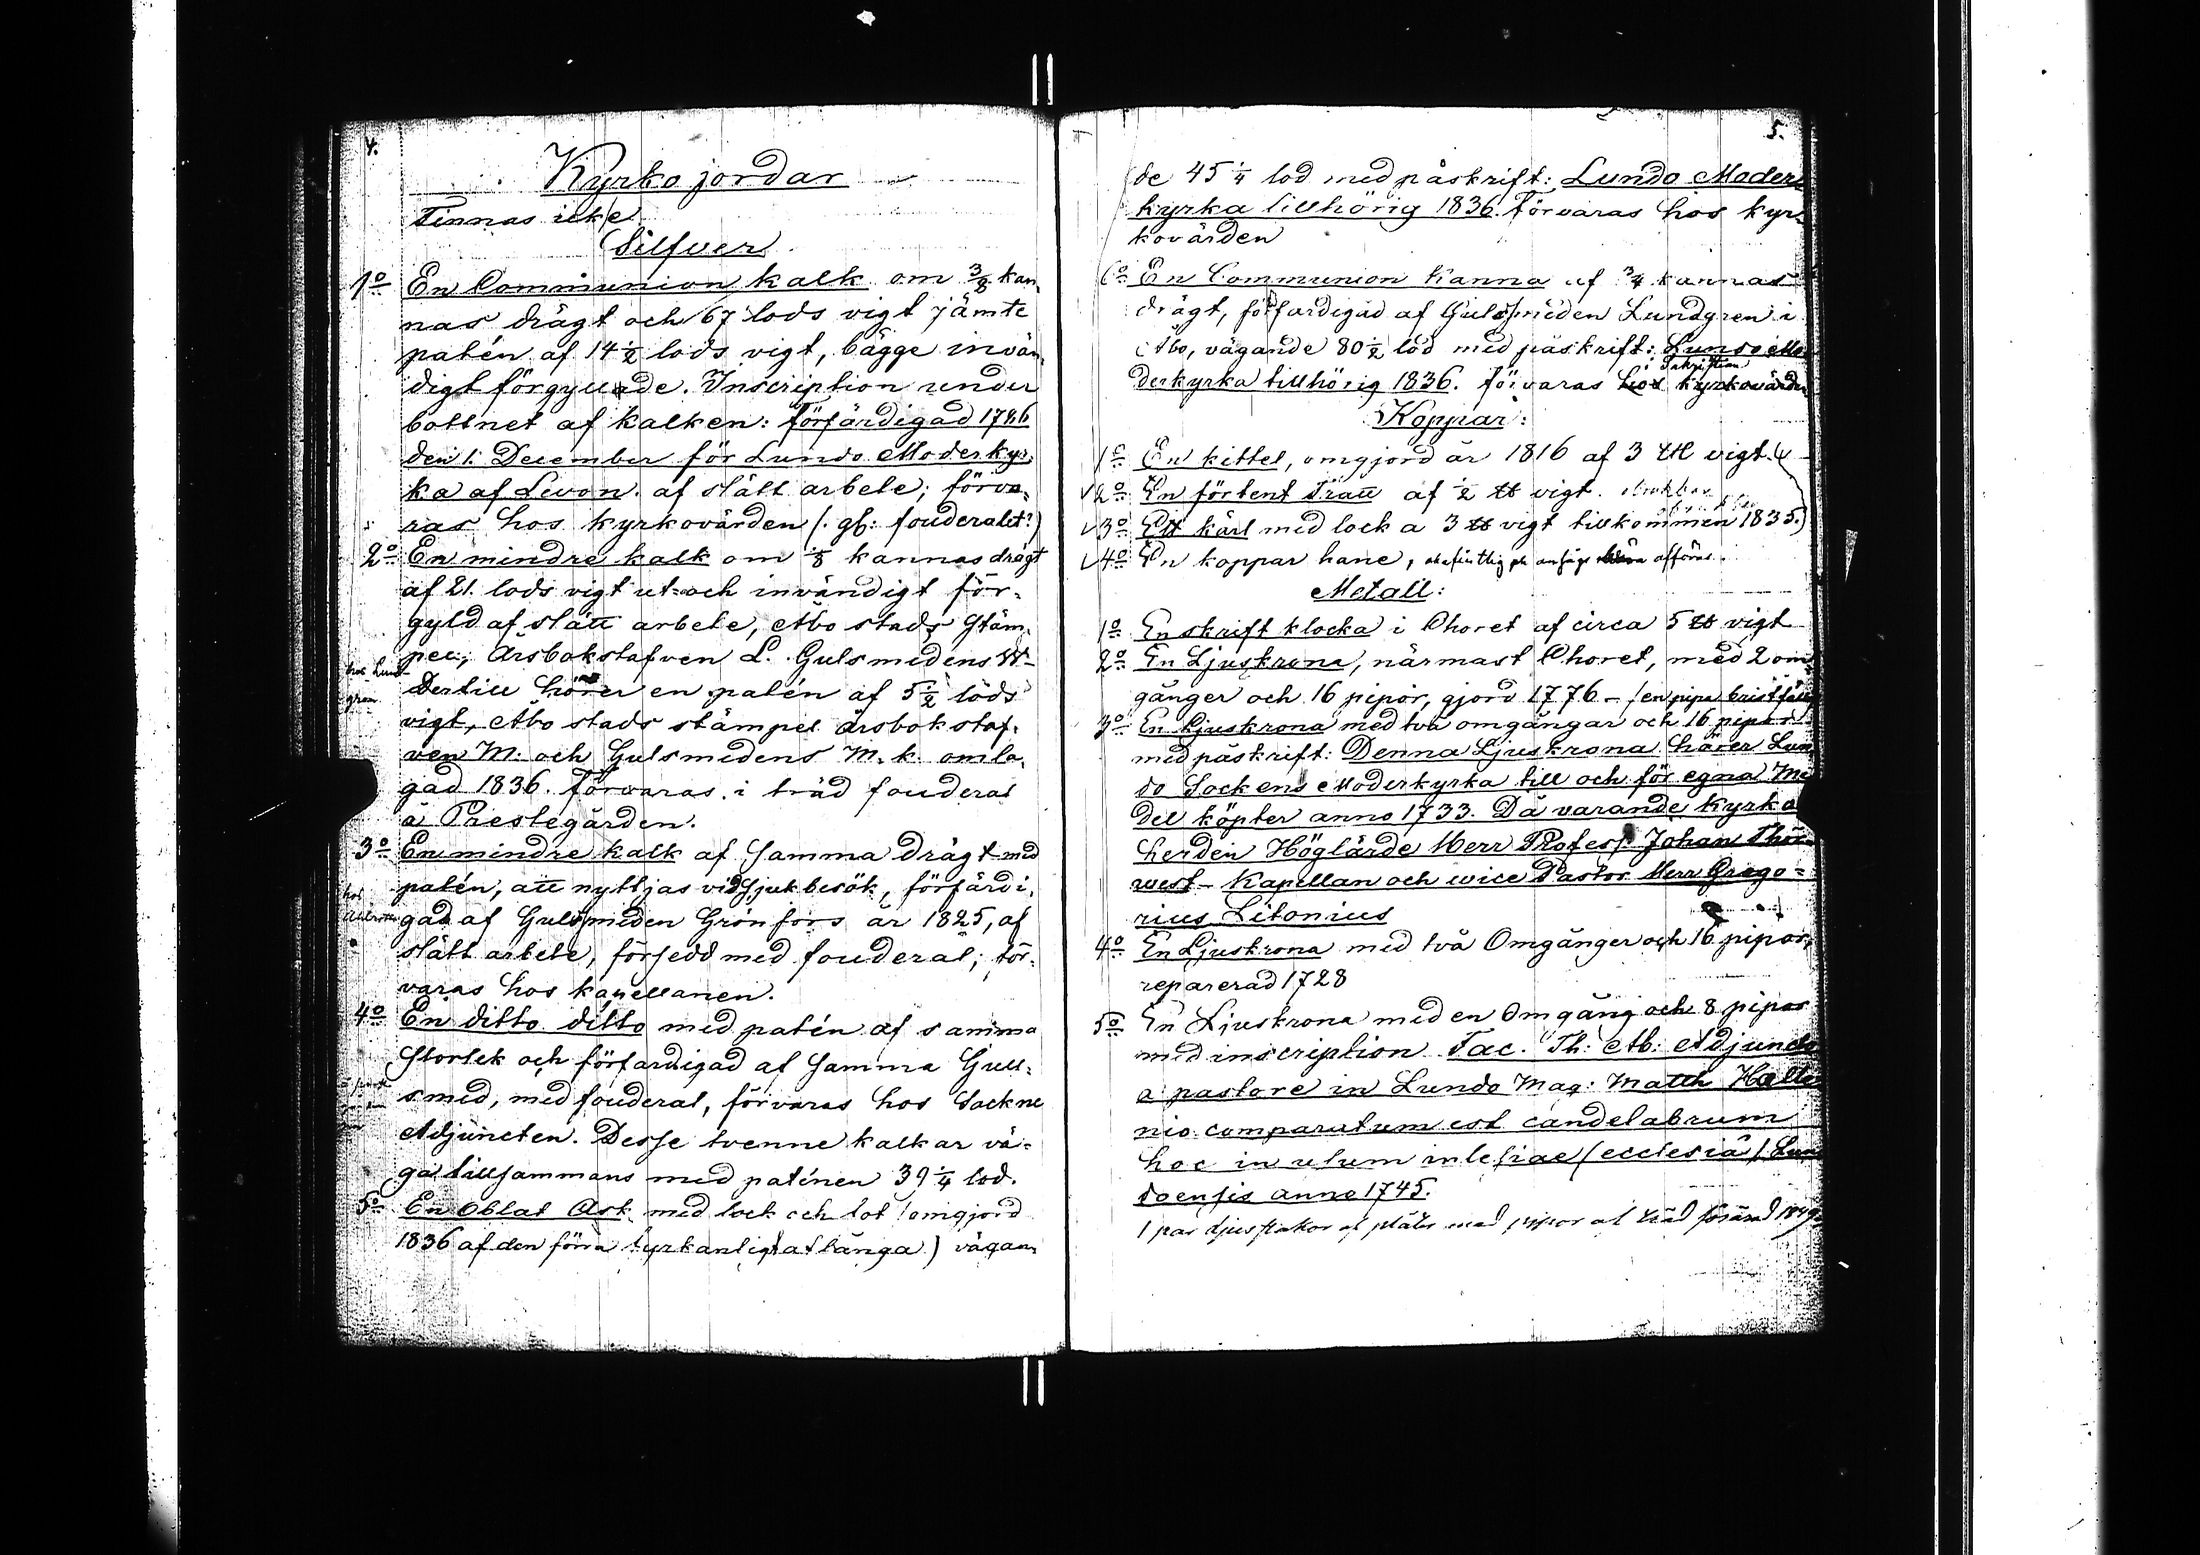 4.
Kyrko jordar
Finnas icke
Silfver
1º En Communion kalk om 3/8 kan-
nas drägt och 67 lods vigt jämte
patén af 14 1/2 lods vigt, bägge invän-
digt förgyllde. Inscription under
bottnet af kalken: förfärdigad
den 1. December för Lundo Moderkyr-
ka af Levon. af slätt arbete; förva-
ras hos kyrkovärden (. gf: fouderalet?)
2º En mindre kalk om 1/8 kannas drägt
af 21. lods vigt ut- och invändigt för-
gyld af slätt arbete, Åbo stads Stäm-
pel; Årsbokstafven L. Gulsmedens W-
Dertill hörer en patén af 5 1/2 lods
vigt, Åbo stads stämpel årsbokstaf-
ven M. och Gulsmedens M. k. omla-
gad 1836. Förvaras i träd fouderal
å Prestegården.
3º En mindre kalk af samma drägt med
patén, att nyttjas vid Sjukbesök, förfärdi-
gad af Gulsmeden Grönfors år 1825, af
slätt arbete, försedd med fouderal; för-
varas hos kapellanen.
4º En ditto ditto med patén af samma
Storlek och förfardigad af samma Gull-
smed, med fouderal, förvaras hos Sockne
Adjuncten. Desse tvenne kalkar vä-
ga tillsammans med patenen 39 1/4 lod.
5º En Oblat Ask med lock och fot (omgjord
1836 af den förra långa) vägan-
5.
de 45 1/4 lod med påskrift: Lundo Moder
kyrka tillhörig 1836. Förvaras hos kyr-
kovärden
6º En Communion Kanna af 3/4 kannas
drägt, förfardigad af Gulsmeden Lundgren i
Åbo, vägande 80 1/2 lod med påskrift: Lundo Mo-
derkyrka tillhörig 1836. förvaras hos kyrkovärden
Koppar:
1º En kittel, omgjord år 1816 af 3 ℔ vigt.
2º En förtent Tratt af 1/2 ℔ vigt.
3º Ett kärl med lock a 3 ℔ vigt tillkommen 1835.)
4º En koppar hane,
Metall:
1º En skrift klocka i Choret af circa 5 ℔ vigt
2º En Ljuskrona, närmast Choret, med 2 om-
gånger och 16 pipor, gjord 1776 - (en pipa bristfällig
3º En Ljuskrona med två omgångar och 16 pipor
med påskrift: Denna Ljuskrona hörer Lun
do Sockens Moderkyrka till och för egna Me
del köpter anno 1733. Då varande kyrko
herden Höglärde Herr Profess. Johan Thor-
west - Kapellan och vice Pastor Herr Grego-
rius Litonius
4º En Ljuskrona med två Omgånger och 16 pipor,
reparerad 1728
5º En Ljuskrona med en Omgång och 8 pipor
med inscription Fac. Th: Ab: Adjuncto
a pastore in Lundo Mag: Matth Halle
nio comparatum est candelabrum
hoc in usum inlesiae (ecclesiä) Lun
doensis anno 1745.
1 par ljusstakor af pläter med pipor af förärad